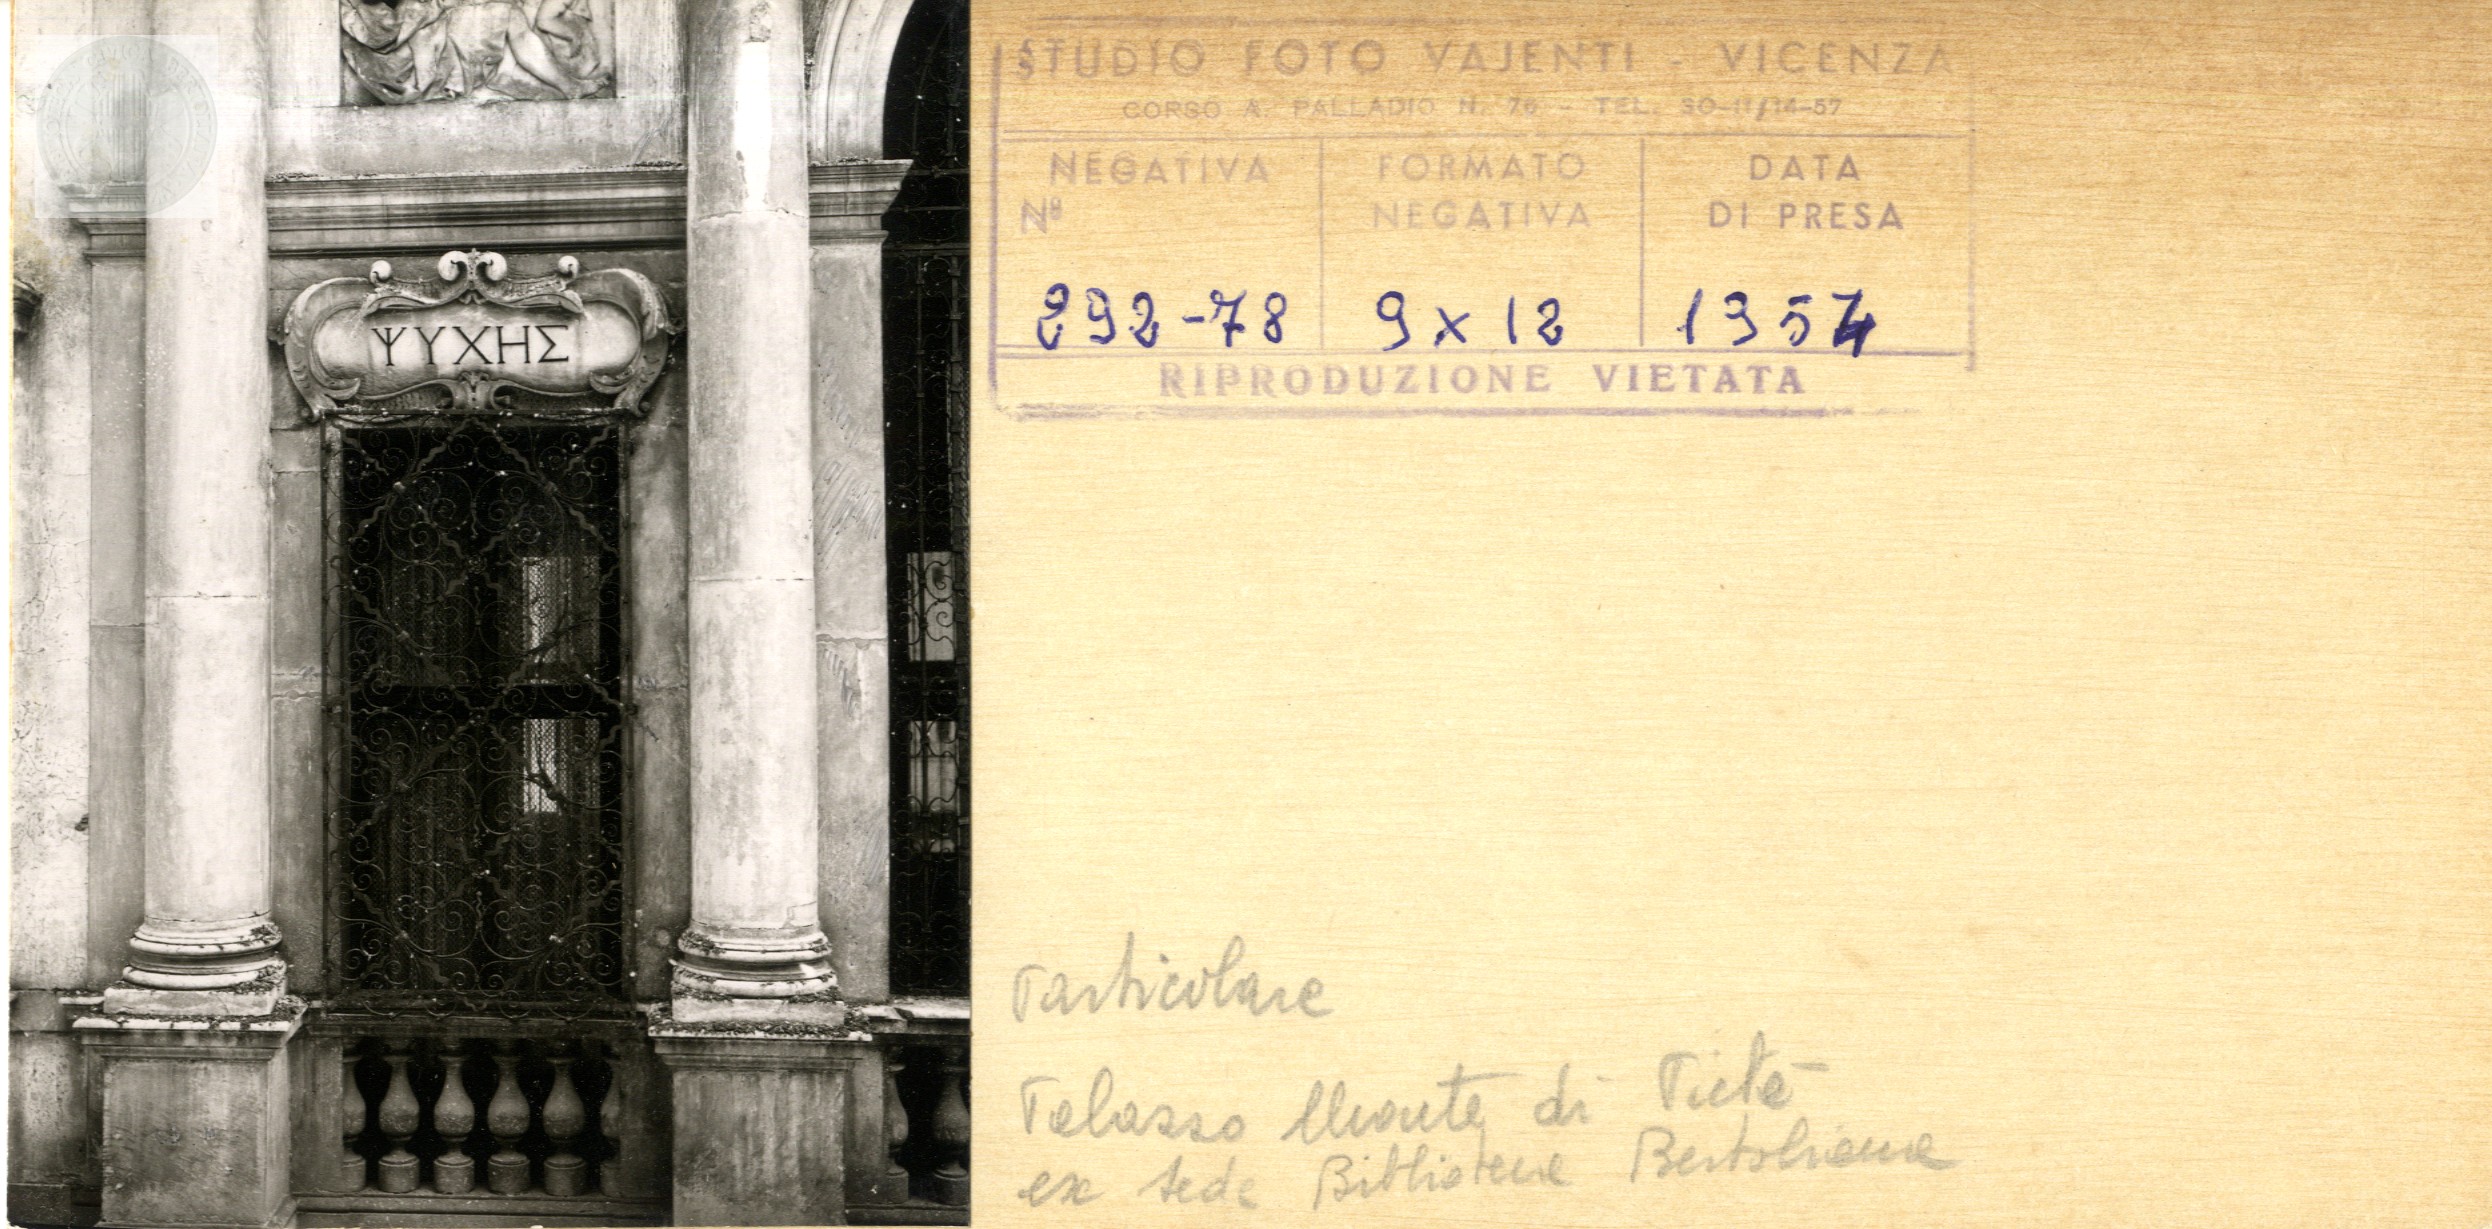 ΨΥΧΗΣ
STUDIO FOTO VAJENTI - VICENZA
CORSO A. PALLADIO N. 76 - TEL.
NEGATIVA
Nº
FORMATO
NEGATIVA
DATA
DI PRESA
292-78
9 x 12
1954
RIPRODUZIONE VIETATA
Particolare
Palazzo Monte di Pietà
ex sede Biblioteca Bertoliana